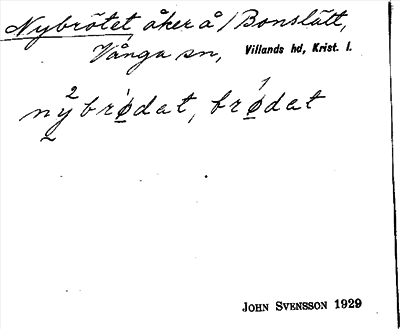 Nybrötet, åker å / Bonslätt,
Vånga sn, Villands hd, Krist. l.
ny²brødat, brødat
JOHN SVENSSON 1929